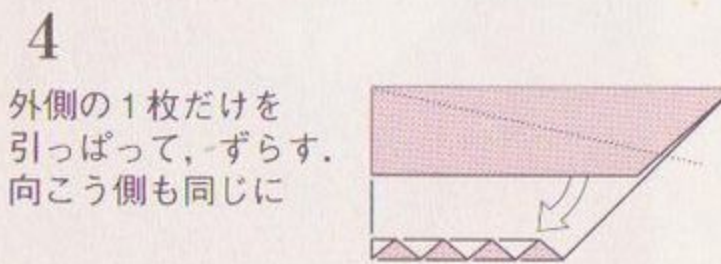 4
外側の1枚だけを
引っぱって，ずらす．
向こう側も同じに